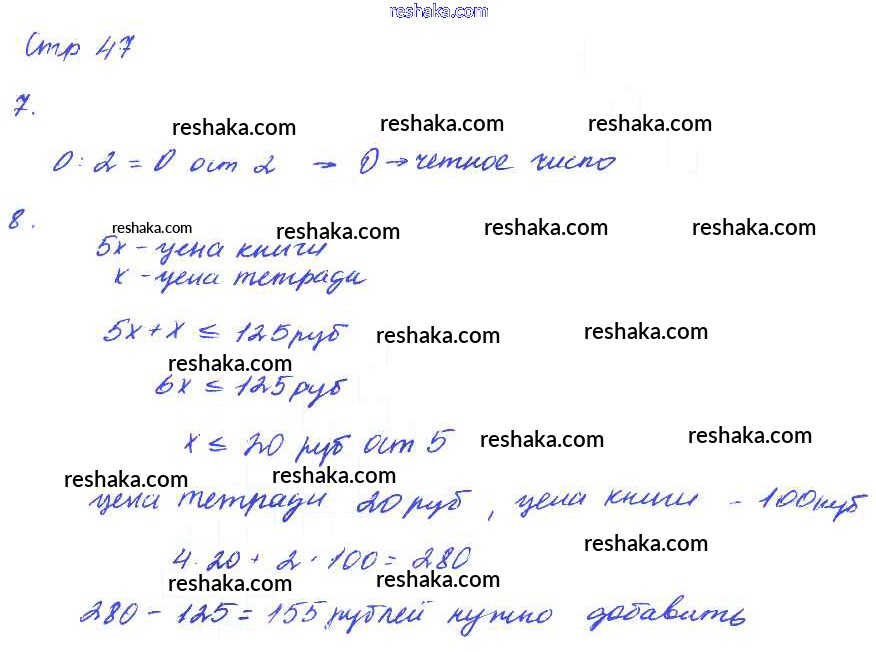 reshaka.com
Стр 47
7.
reshaka.com reshaka.com reshaka.com
0 : 2 = 0 ост 2 → 0 → четное число
8.
reshaka.com reshaka.com reshaka.com reshaka.com
5x - цена книги
x - цена тетради
5x + x ≤ 125 руб reshaka.com reshaka.com
reshaka.com
6x ≤ 125 руб
x ≤ 20 руб ост 5 reshaka.com reshaka.com
reshaka.com reshaka.com
цена тетради 20 руб, цена книги - 100 руб
reshaka.com
4 · 20 + 2 · 100 = 280
reshaka.com reshaka.com
280 - 125 = 155 рублей нужно добавить